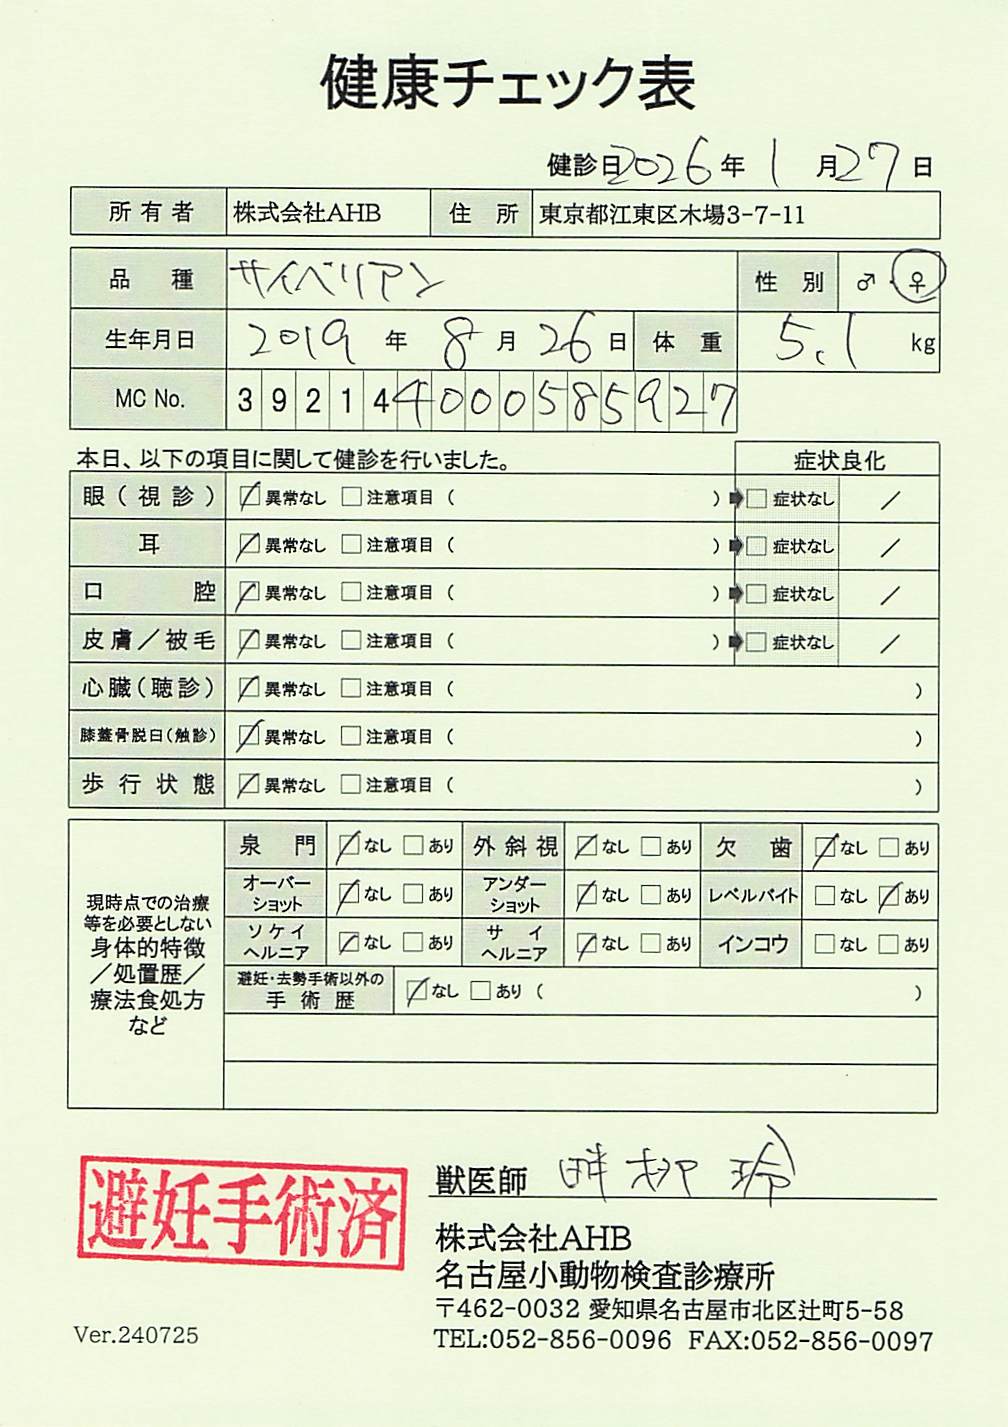 健康チェック表
健診日 2026 年 1 月 27 日
所有者 株式会社AHB 住所 東京都江東区木場3-7-11
品種 サイベリアン 性別 ♂・♀
生年月日 2019 年 8 月 26 日 体重 5.1 kg
MC No. 392144000585927
本日、以下の項目に関して健診を行いました。 症状良化
眼(視診) ☑異常なし □注意項目( ) ➡ □症状なし /
耳 ☑異常なし □注意項目( ) ➡ □症状なし /
口腔 ☑異常なし □注意項目( ) ➡ □症状なし /
皮膚/被毛 ☑異常なし □注意項目( ) ➡ □症状なし /
心臓(聴診) ☑異常なし □注意項目( )
膝蓋骨脱臼(触診) ☑異常なし □注意項目( )
歩行状態 ☑異常なし □注意項目( )
現時点での治療
等を必要としない
身体的特徴
/処置歴/
療法食処方
など
泉門 ☑なし □あり 外斜視 ☑なし □あり 欠歯 ☑なし □あり
オーバーショット ☑なし □あり アンダーショット ☑なし □あり レベルバイト □なし ☑あり
ソケイヘルニア ☑なし □あり サイヘルニア ☑なし □あり インコウ □なし □あり
避妊・去勢手術以外の手術歴 ☑なし □あり( )
避妊手術済
獣医師 畔柳 玲
株式会社AHB
名古屋小動物検査診療所
〒462-0032 愛知県名古屋市北区辻町5-58
TEL:052-856-0096 FAX:052-856-0097
Ver.240725